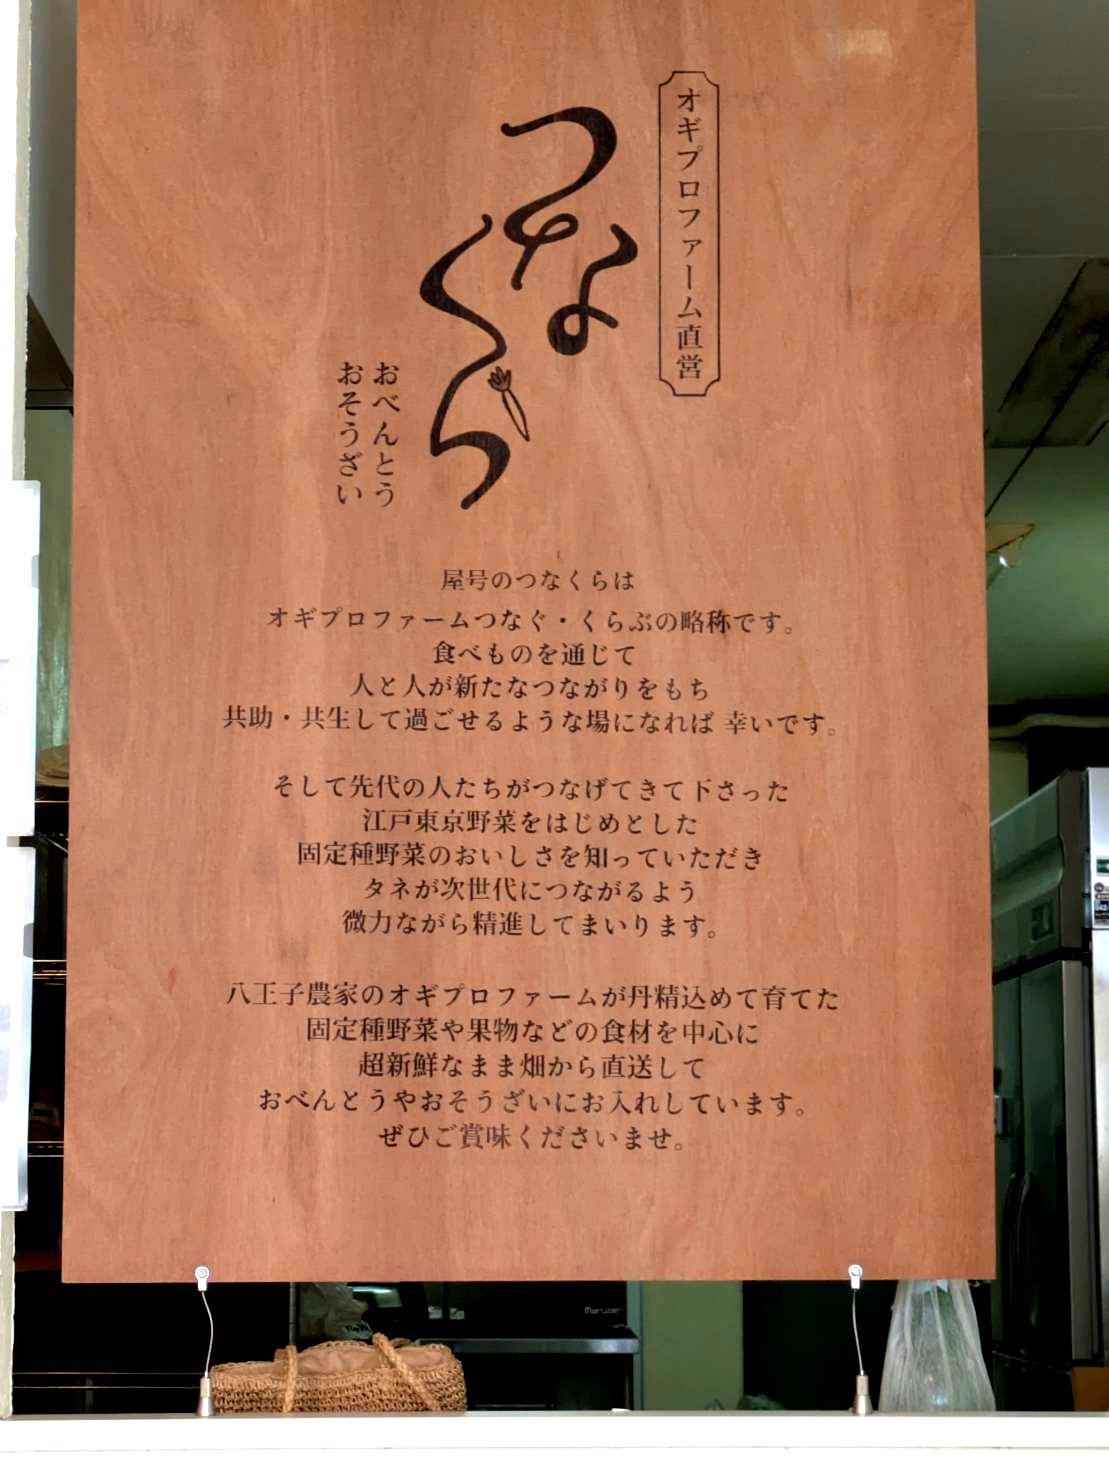 オギプロファーム直営
つなくら
おべんとう
おそうざい
屋号のつなくらは
オギプロファームつなぐ・くらぶの略称です。
食べものを通じて
人と人が新たなつながりをもち
共助・共生して過ごせるような場になれば 幸いです。
そして先代の人たちがつなげてきて下さった
江戸東京野菜をはじめとした
固定種野菜のおいしさを知っていただき
タネが次世代につながるよう
微力ながら精進してまいります。
八王子農家のオギプロファームが丹精込めて育てた
固定種野菜や果物などの食材を中心に
超新鮮なまま畑から直送して
おべんとうやおそうざいにお入れしています。
ぜひご賞味くださいませ。
maruzen